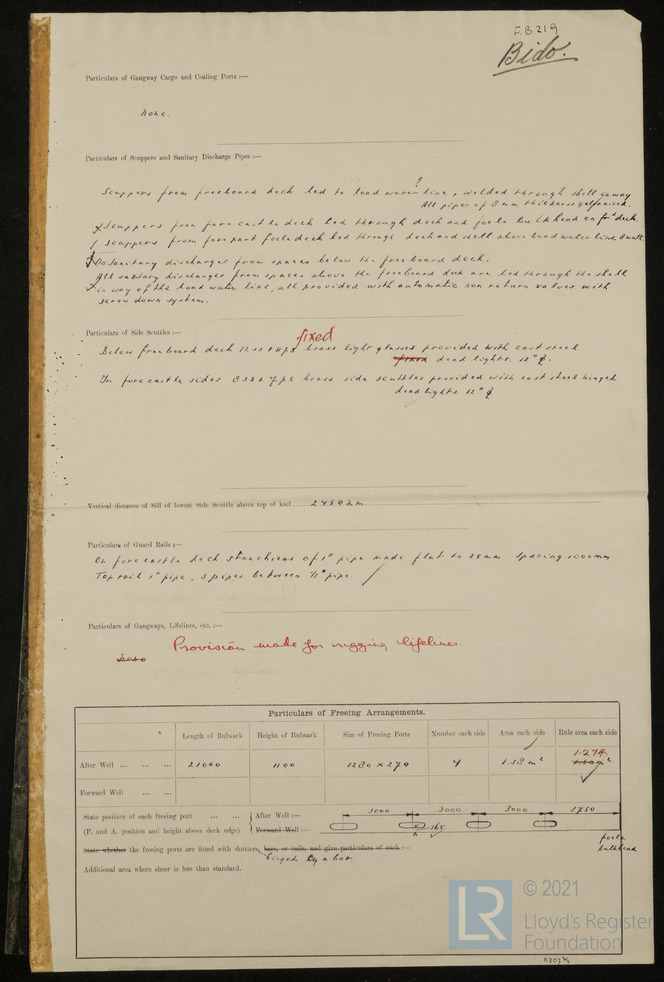 F.B 219
Bido.
Particulars of Gangway Cargo and Coaling Ports :—
None.
Particulars of Scuppers and Sanitary Discharge Pipes :—
?
Scuppers from freeboard deck led to load water line, welded through shell in way
All pipes of 8 mm thickness galvanised.
Scuppers from fore castle deck led through deck and focle bulkhead on frd deck.
scuppers from fore part focle deck led through deck and shell above load water line
No sanitary discharges from spaces below the freeboard deck.
All sanitary discharges from spaces above the freeboard deck are led through the shell
in way of the load water line, all provided with automatic non return valves with
screw down system.
Particulars of Side Scuttles :—
fixed
Below freeboard deck 12 ss + 11 ps brass light glasses provided with cast steel
fixed dead lights. 12"
In fore castle sides 8 ss + 7 ps brass side scuttles provided with cast steel hinged
dead lights 12"
Vertical distance of Sill of lowest Side Scuttle above top of keel
Particulars of Guard Rails :—
On fore castle deck stanchions of 1" pipe made flat to 25 mm spacing 1000 mm
Top rail 1" pipe, 3 pipes between 1/2" pipe.
Particulars of Gangways, Lifelines, etc. :—
None
Provision made for rigging lifelines.
Particulars of Freeing Arrangements.
Length of Bulwark Height of Bulwark Size of Freeing Ports Number each side Area each side Rule area each side
1.274.
After Well ... ... ... 21000 1100 1280 x 270 4 1.38 m²
Forward Well ... ...
3000 3000 3000 1750
State position of each freeing port ... ... After Well :—
(F. and A. position and height above deck edge) Forward Well :— 165
focle
bulkhead
State whether the freeing ports are fitted with shutters, bars, or rails, and give particulars of each :—
hinged by a bar
Additional area where sheer is less than standard.
LR
© 2021
Lloyd's Register
Foundation